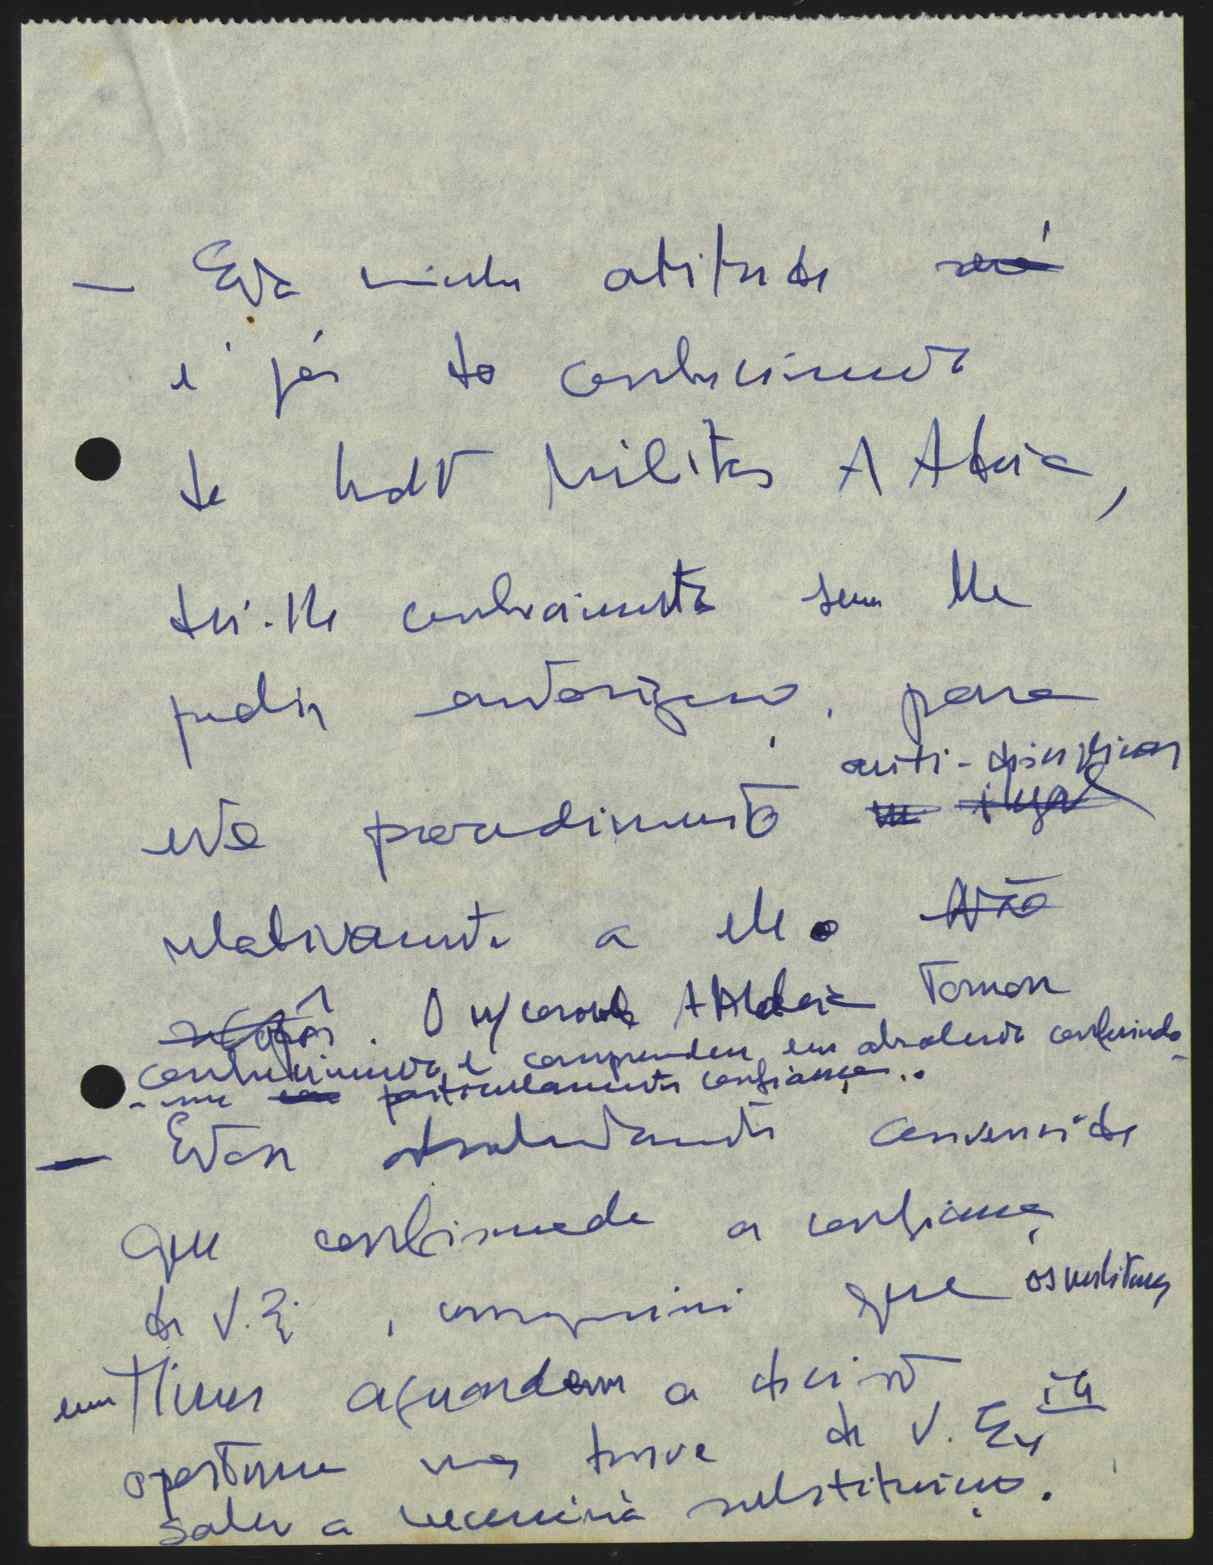 — Esta minha atitude será
é já do conhecimento
de
dei-lhe conhecimento sem lhe
pedir autorização, para
este procedimento anti-disciplinar
relativamente a ele. Não
O Tomou
conhecimento e compreendeu em absoluto conferindo
-me particularmente confiança.
— Estou absolutamente convencido
que confirmada a confiança
de V. Ex., conseguirei que os militares
em Timor aguardem a decisão
oportuna mas breve de V. Exia
sobre a necessária substituição.